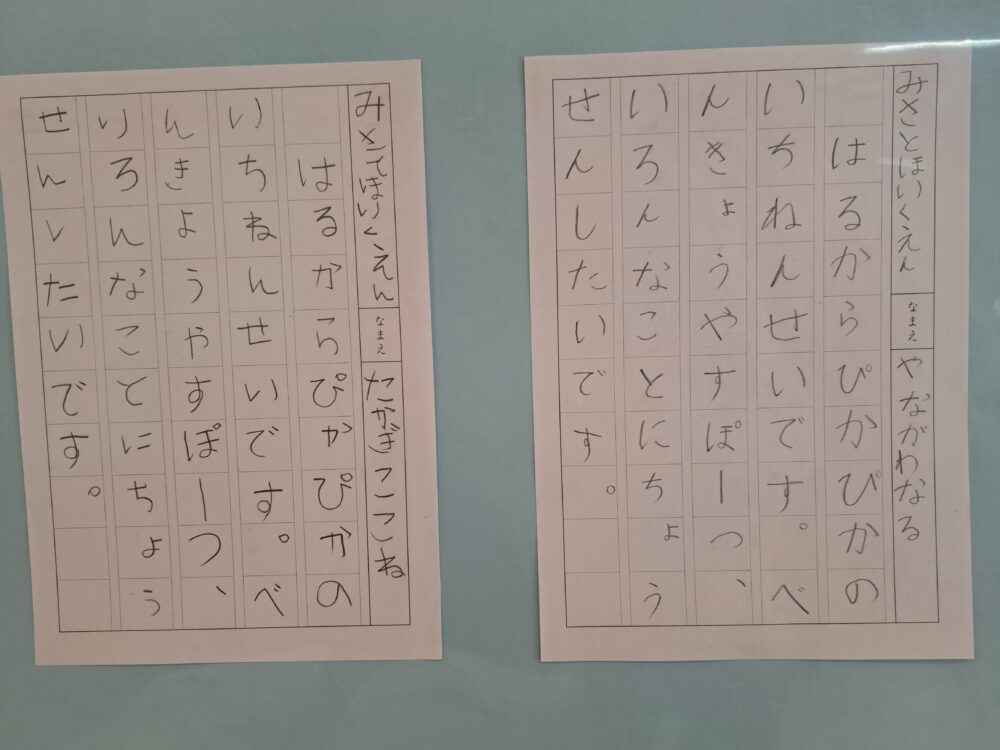 みさとほいくえん なまえ やながわなる
はるからぴかぴかの
いちねんせいです。べ
んきょうやすぽーつ、
いろんなことにちょう
せんしたいです。
みさとほいくえん なまえ たかぎここね
はるからぴかぴかの
いちねんせいです。べ
んきょうやすぽーつ、
いろんなことにちょう
せんしたいです。